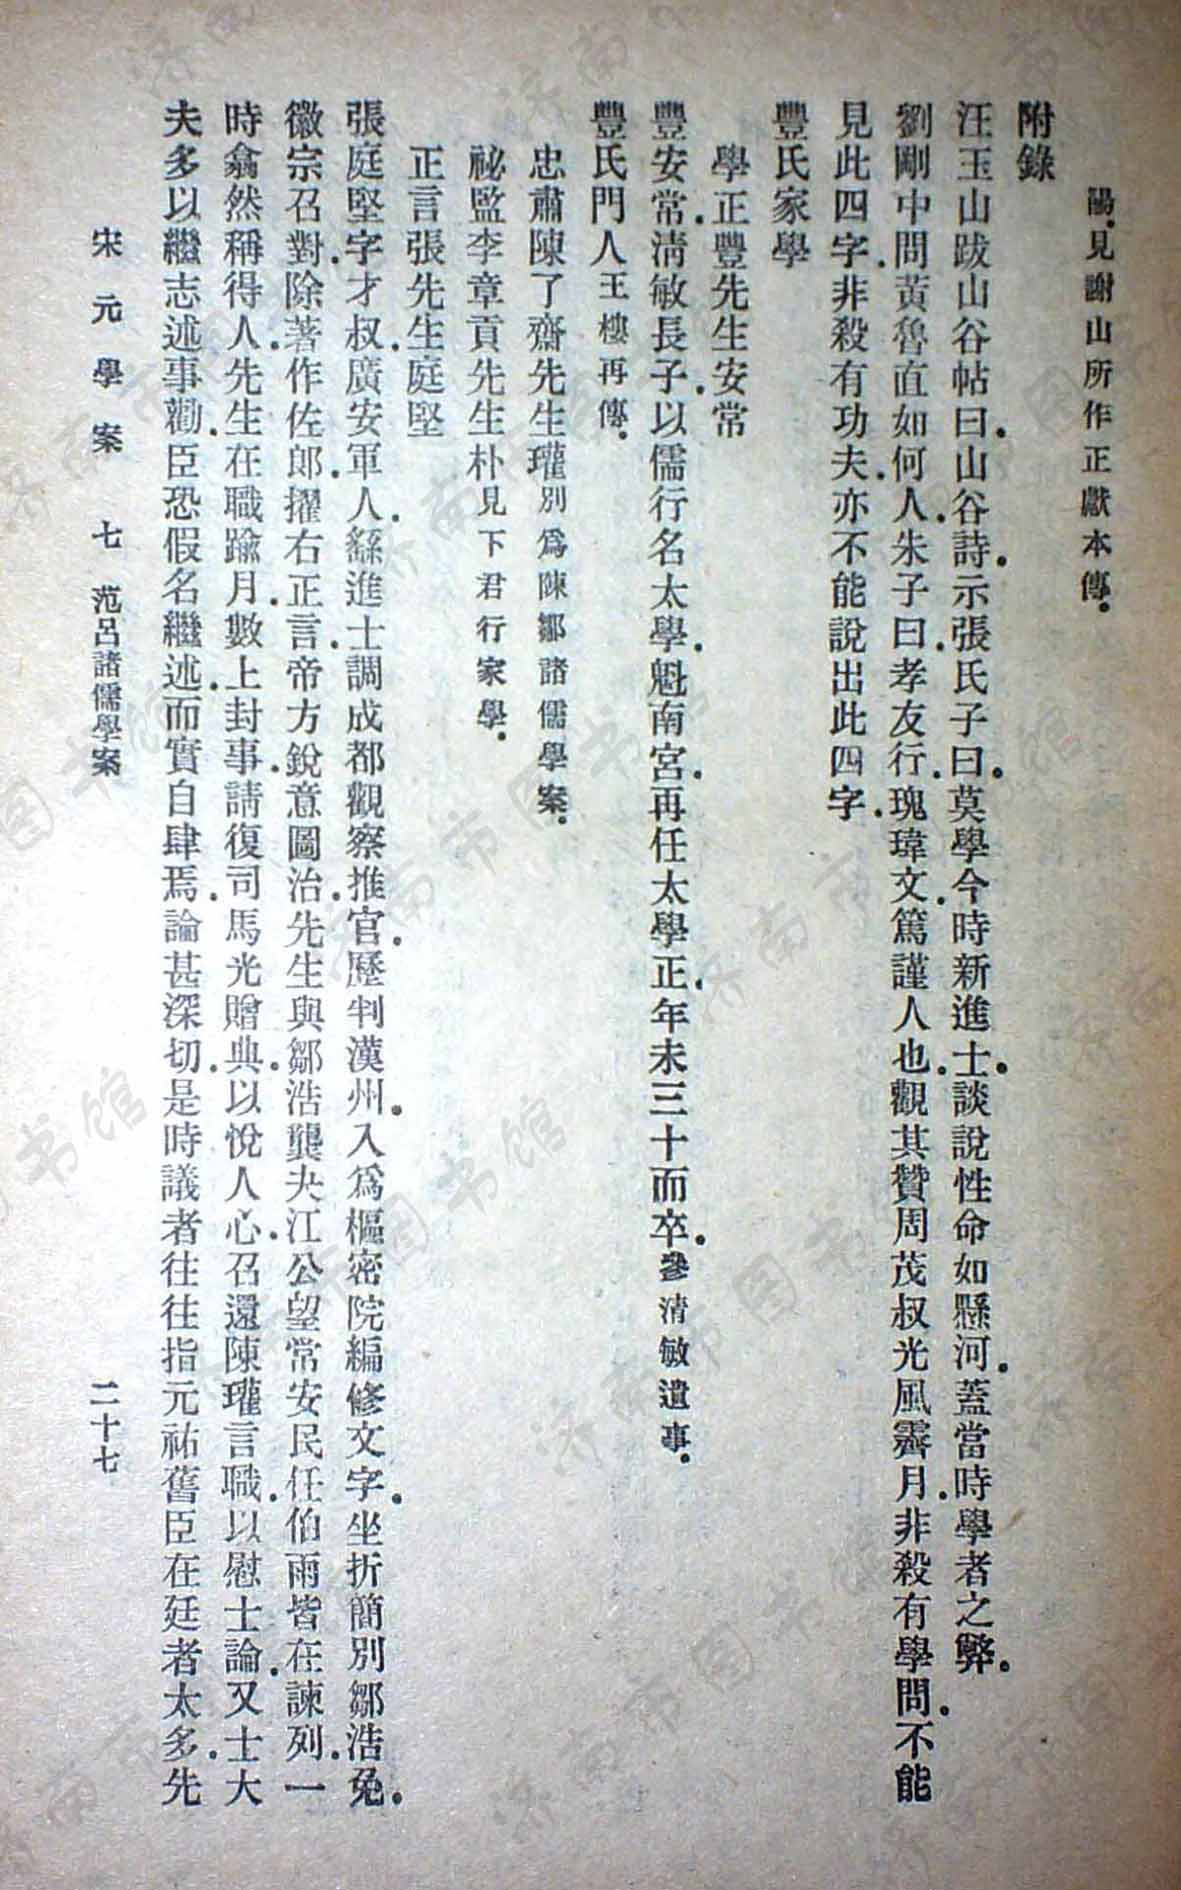 陽．見謝山所作正獻本傳．
附錄
汪玉山跋山谷帖曰．山谷詩．示張氏子曰．莫學今時新進士．談說性命如懸河．蓋當時學者之弊．
劉剛中問黃魯直如何人．朱子曰．孝友行．瑰瑋文．篤謹人也．觀其贊周茂叔光風霽月．非殺有學問．不能
見此四字．非殺有功夫．亦不能說出此四字．
豐氏家學
學正豐先生安常
豐安常．清敏長子．以儒行名太學．魁南宮．再任太學正．年未三十而卒．參清敏遺事．
豐氏門人王樓再傳．
忠肅陳了齋先生瓘別爲陳鄒諸儒學案．
祕監李章貢先生朴見下君行家學．
正言張先生庭堅
張庭堅．字才叔．廣安軍人．繇進士．調成都觀察推官．歷判漢州．入爲樞密院編修文字．坐折簡別鄒浩免．
徽宗召對．除著作佐郎．擢右正言．帝方銳意圖治．先生與鄒浩龔夬江公望常安民任伯雨皆在諫列．一
時翕然稱得人．先生在職踰月．數上封事．請復司馬光贈典．以悅人心．召還陳瓘言職．以慰士論．又士大
夫多以繼志述事勸．臣恐假名繼述．而實自肆焉．論甚深切．是時議者往往指元祐舊臣在廷者太多．先
宋元學案 七 范呂諸儒學案 二十七
济南市图书馆